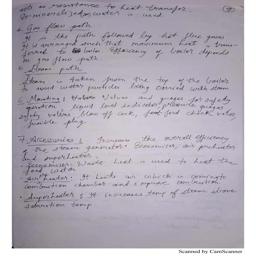 acts as resistance to heat transfer.
Demineralized water is used.
4. Gas flow path
It is the path followed by hot flue gases
It is arranged such that maximum heat is trans-
ferred to water. Efficiency of boiler depends
on gas flow path
5. Steam path
Steam is taken from the top of the boiler
to avoid water particles being carried with steam
6. Mounting: Valves and gauges for safety
operation liquid level indicator, pressure gauges
safety valves, blow off cock, feed check valve,
fusible plug.
7. Accessories: Increase the overall efficiency
of the steam generator. Economiser, air preheater
and superheater.
Economiser: Waste heat is used to heat the
feed water
Air heater: It heats air which is going to
combustion chamber and complete combustion.
Superheater: It increases temp of steam above
saturation temp.
Scanned by CamScanner